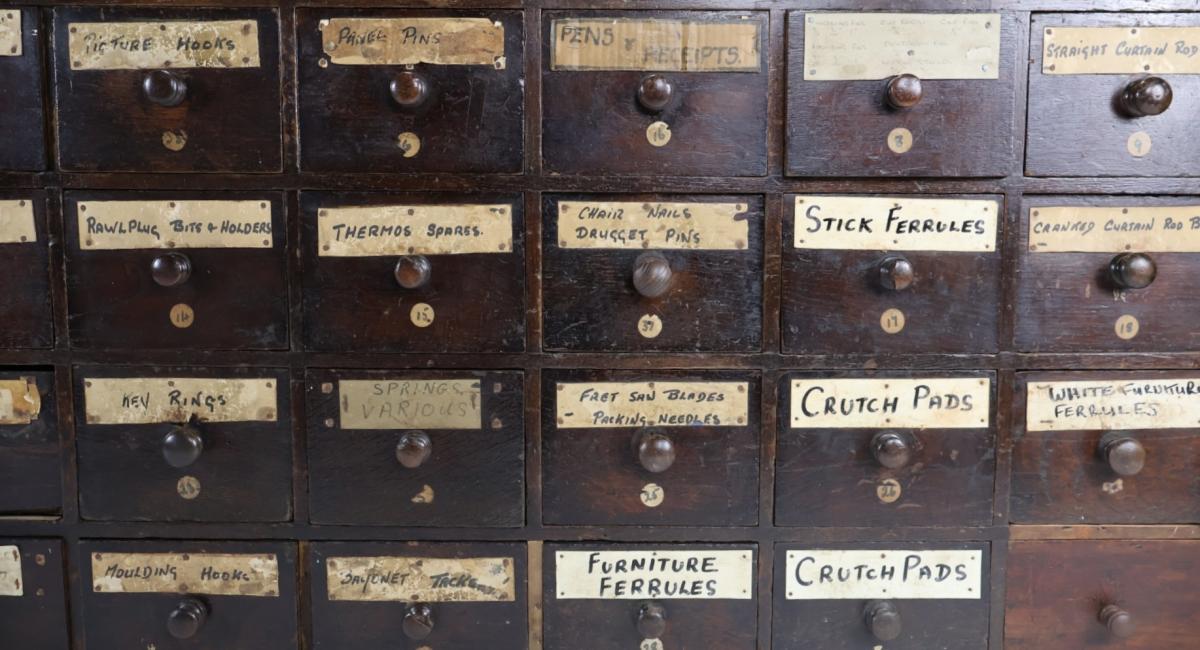 PICTURE HOOKS
PANEL PINS
PENS & RECEIPTS.
STRAIGHT CURTAIN ROD
6
16
8
9
RAWLPLUG BITS & HOLDERS
THERMOS SPARES.
CHAIR NAILS
DRUGGET PINS
STICK FERRULES
CRANKED CURTAIN ROD
14
15
37
17
18
KEY RINGS
SPRINGS
VARIOUS
FRET SAW BLADES
- PACKING NEEDLES
CRUTCH PADS
WHITE FURNITURE
FERRULES
25
26
MOULDING HOOKS
FURNITURE
FERRULES
CRUTCH PADS
28